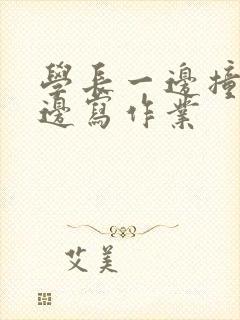 學長一邊撞
邊寫作業
艾美